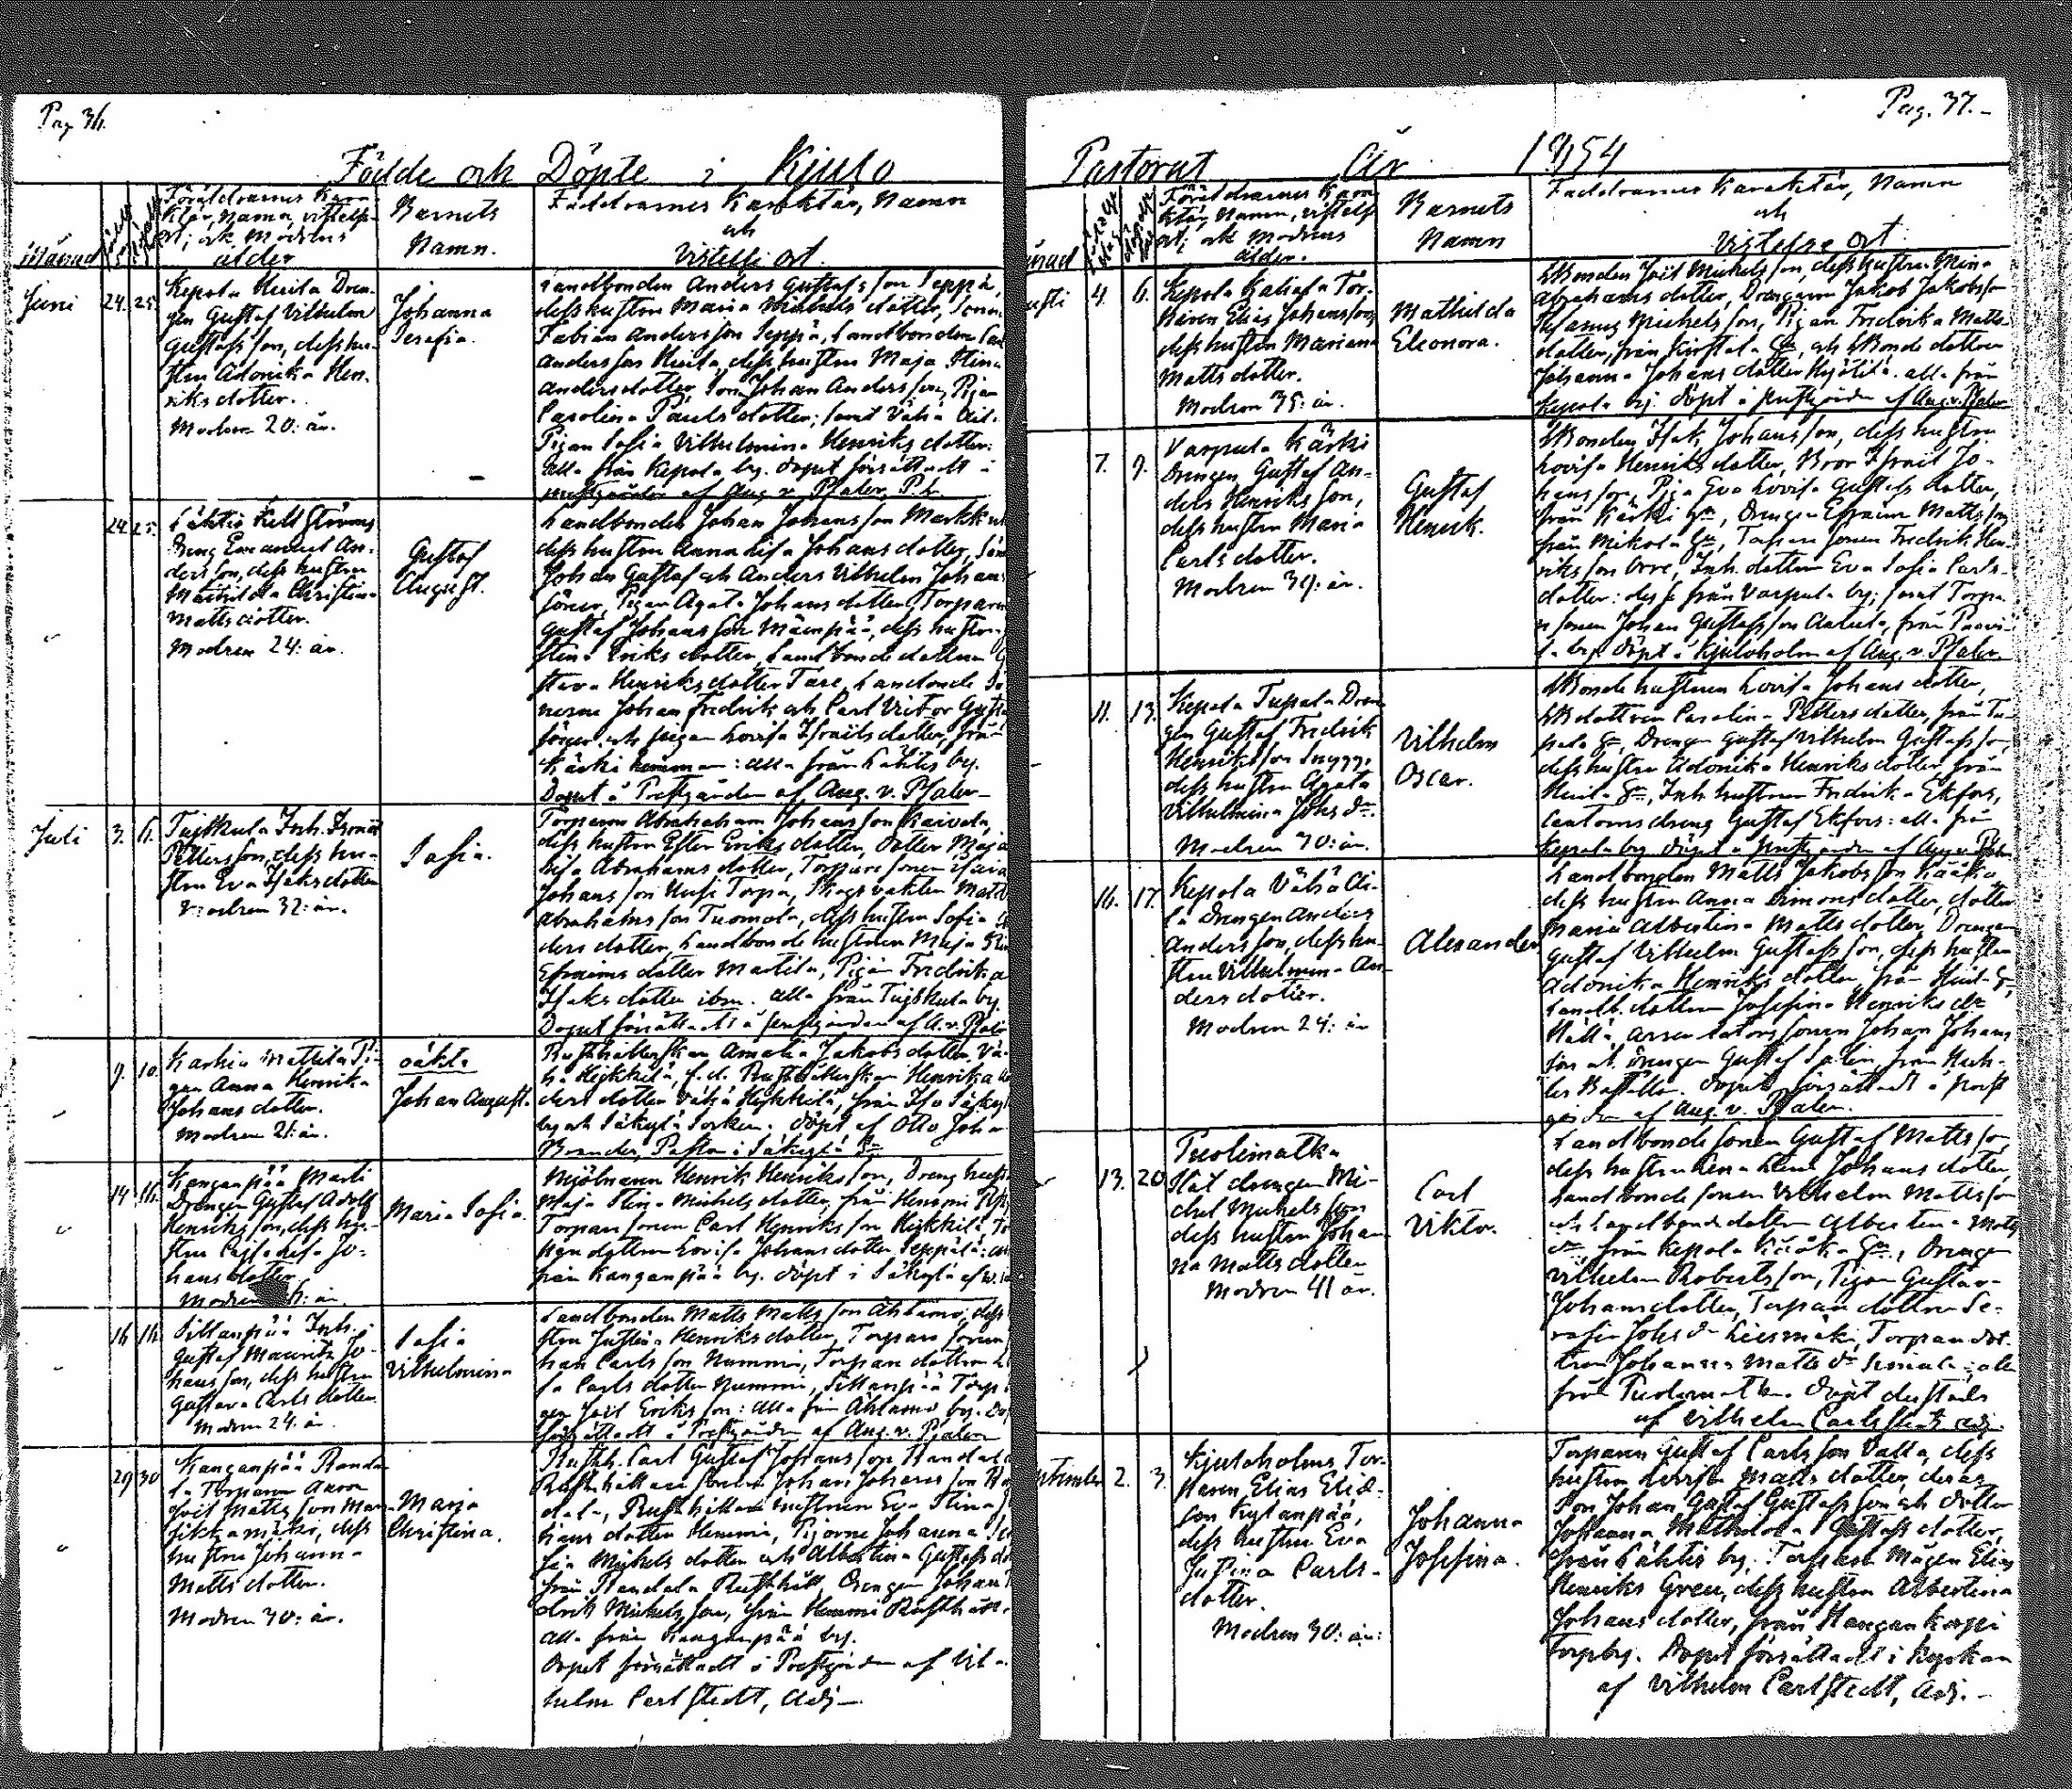 Pag 36.
Födde och Döpte i Kjulo
Månad
Föräldrarnes Karak-
tär, Namn, vistelse-
ort; och Modrens
ålder
Barnets
Namn.
Faddrarnes Karaktär, Namn
och
Vistelse ort.
Juni 24. 25.
Kepola Huila Dren-
gen Gustaf Vilhelm
Gustafsson, dess hu-
stru Adonika Hen-
riks dotter.
Modren 20: år.
Johanna
Serafia.
Landbonden Anders Gustafsson Seppä,
dess hustru Maria Michels dotter, Sonen
Fabian Andersson Seppä, Landbonden
Andersson Huila, dess hustru Maja Stina
Anders dotter, Son Johan Andersson, Pigan
Carolina Pauls dotter; samt Vähä
Pigan Sofia Vilhelmina Henriks dotter:
alla från Kepola by. Dopet förrättadt i
prestgården af Aug. v. Pfaler, P.
24. 25.
Dreng Emanuel An-
dersson, dess hustru
Mathilda Christina
Matts dotter.
Modren 24: år.
Gustaf
August.
Landbonden Johan Johansson
dess hustru Anna Lisa Johans dotter,
Johan Gustaf och Anders Vilhelm Johans
söner, Pigan Agata Johans dotter, Torparen
Gustaf Johansson Mäenpää, dess hustru
Stina Eriks dotter, Landbonde dottren
stava Henriks dotter Tare, Landbonde Sö-
nerne Johan Fredrik och Carl Victor
söner, och pigan Lovisa Israels dotter, från
Kärki hemman: alla från Lähtis by.
Dopet i Prestgården af Aug. v. Pfaler
Juli 3. 6.
Tujskula Inh.
Pettersson, dess hu-
stru Eva Isaks dotter
Modren 32: år.
Sofia.
Torparen Abraham Johansson Kaivola,
dess hustru Ester Eriks dotter, dotter Maja
Lisa Abrahams dotter, Torpare sonen
Johansson Uusi Torpa, Skogsvakten Matts
Abrahamsson Tuomola, dess hustru Sofia
ders dotter, Landbonde hustrun Maja
Efraims dotter Mattila, Pigan Fredrika
Isaks dotter ibm. alla från Tujskula by.
Dopet förrättadt i prestgården af A. v. Pfaler
9. 10.
Karhia Mattila Pi-
gan Anna Henrika
Johans dotter.
Modren 21: år.
oäkta
Johan August.
Rusthållerskan Amalia Jakobs dotter Vä-
hä Heikkilä, f.d. Rusthållerskan Henrika
ders dotter Vähä Heikkilä, från Iso Säkylä
by och Säkylä Socken. Döpt af Otto Joh.
Brander, Pastor i Säkylä
14 16.
Kanganpää Marti
Drengen Gustaf Adolf
Henriksson, dess hu-
stru Lisa Jo-
hans dotter
Modren
Maria Sofia.
Mjölnaren Henrik Henriksson, Dreng hustr
Maja Stina Michels dotter, från Hemmi
Torpare sonen Carl Henriksson Heikkilä,
pare dottren Lovisa Johans dotter Seppälä:
från Kanganpää by. döpt i Säkylä af
16 16.
Sillanpää Inh.
Gustaf Mauritz Jo-
hansson, dess hustru
Gustava Carls dotter
Modren 24: år.
Sofia
Vilhelmina
Landbonden Matts Mattsson Ahlamo, dess
stru Justina Henriks dotter, Torpare sonen
han Carlsson Nummi, Torpare dottren
sa Carls dotter Nummi, Sillanpää Torp
Joel Eriksson: alla från Ahlamo by. Dop
förrättadt i Prestgården af Aug. v. Pfaler
29 30
Kanganpää Randa-
la Torparen Aaron
Joel Mattsson Man-
sikkamäki, dess
hustru Johanna
Matts dotter.
Modren 30: år.
Maria
Christina.
Rusth. Carl Gustaf Johansson Randala
Rusthållare sonen Johan Johansson
dala, Rusthållare hustrun Eva Stina
hans dotter Hemmi, Pigorne Johanna
Michels dotter och Albertina Gustafs
från Randala Rusthåll, Drengen Johan
drik Michelsson, från Hemmi Rusthåll.
alla från Kanganpää by.
Dopet förrättadt i Prestgården af Vil-
helm Carlstedt, Adj.
Pag. 37.
Pastorat År 1854
Föräldrarnes Karak-
tär, Namn, vistelse
ort; och Modrens
ålder.
Barnets
Namn
Faddrarnes Karaktär, Namn
och
Vistelse ort.
4. 6.
Kepola Torparen Elias Johansson
dess hustru Mariana
Matts dotter.
Modren 35: år.
Mathilda
Eleonora.
Bonden Joel Michelsson, dess hustru Mina
Abrahams dotter, Drengarne Jakob Jakobsson
Michelsson, Pigan Fredrika Matts-
dotter, från och Bonde dottren
Johanna Johans dotter alla från
Kepola by. döpt i prestgården af Aug. v. Pfaler
7. 9.
Varpula Kärki
Drengen Gustaf An-
ders Henriksson,
dess hustru Maria
Carls dotter.
Modren 39: år.
Gustaf
Henrik.
Bonden Isak Johansson, dess hustru
Lovisa Henriks dotter, Bror Israel Jo-
hansson, Piga Eva Lovisa Gustafs dotter,
från Kärki, Drengen Efraim Mattsson
från Mikola, Torpare sonen Fredrik Hen-
riksson Orre, Inh. dottren Eva Sofia Carls-
dotter: dessa från Varpula by; samt Torpa-
re sonen Johan Gustafsson Anttila, från
by. Döpt i Kjuloholm af Aug. v. Pfaler.
11. 13.
Kepola Tupala Dren-
gen Gustaf Fredrik
Henriksson Snygg,
dess hustru Agata
Vilhelmina Johs dr.
Modren 30: år.
Vilhelm
Oscar.
Bonde hustrun Lovisa Johans dotter,
Bdottren Carolina Petters dotter, från Tu-
pala, Drengen Gustaf Vilhelm Gustafsson,
dess hustru Adonika Henriks dotter, från
Huila, Inh. hustrun Fredrika Ekfors,
Cantors dreng Gustaf Ekfors: alla från
Kepola by. döpt i prestgården af Aug. v. Pfaler
16. 17.
Kepola Vähä
Drengen Anders
Andersson, dess hu-
stru Vilhelmina An-
ders dotter.
Modren 24: år
Alexander
Landbonden Matts Jakobsson Kääkä
dess hustru Anna Simons dotter, dotter
Maria Albertina Matts dotter, Drengen
Gustaf Vilhelm Gustafsson, dess hustru
Adonika Henriks dotter, från Huila,
Landb. dottren Josefina Henriks dr
sonen Johan Johans
son och drengen Gustaf från
Dopet förrättadt i prest
gården af Aug. v. Pfaler.
13. 20
Tuolimatka
drengen Mi-
chel Michelsson
dess hustru Johan-
na Matts dotter
Modren 41 år.
Carl
Viktor.
Landbonde sonen Gustaf Mattsson,
dess hustru Lena Johans dotter,
Landbonde sonen Vilhelm Mattsson
och Landbonde dottren Albertina Matts
dr, från Kepola Kääkä, Drengen
Vilhelm Robertsson, Pigan Gustava
Johans dotter, Torpare dottren Se-
rafia Johs dr Liesmäki, Torpare dot-
tren Johanna Matts dr alla
från Tuolimatka. Döpt dustads
af Vilhelm Carlstedt adj.
2. 3.
Kjuloholms Tor-
paren Elias Elias-
son Kylänpää,
dess hustru Eva
Justina Carls-
dotter.
Modren 30: år:
Johanna
Josefina.
Torparen Gustaf Carlsson Valla, dess
hustru Lovisa Matts dotter, deras
Son Johan Gustaf Gustafsson och dotter
Johanna Mathilda Gustafs dotter,
från Lähtis by. Torpare Mågen Elias
Henriks Green, dess hustru Albertina
Johans dotter, från Hangankorpi
Torpby. Dopet förrättadt i Kyrkan
af Vilhelm Carlstedt, Adj.